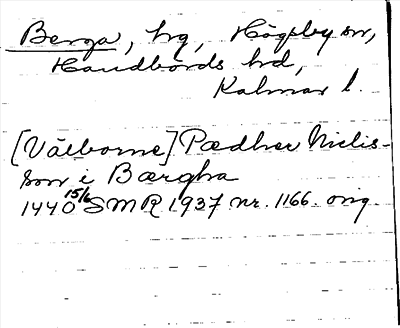 Berga, hg, Högsby sn,
Handbörds hd,
Kalmar l.
[Välborne] Pædher Niclis-
son i Bærgha
1440 15/6 SMR 1937 nr. 1166. orig.